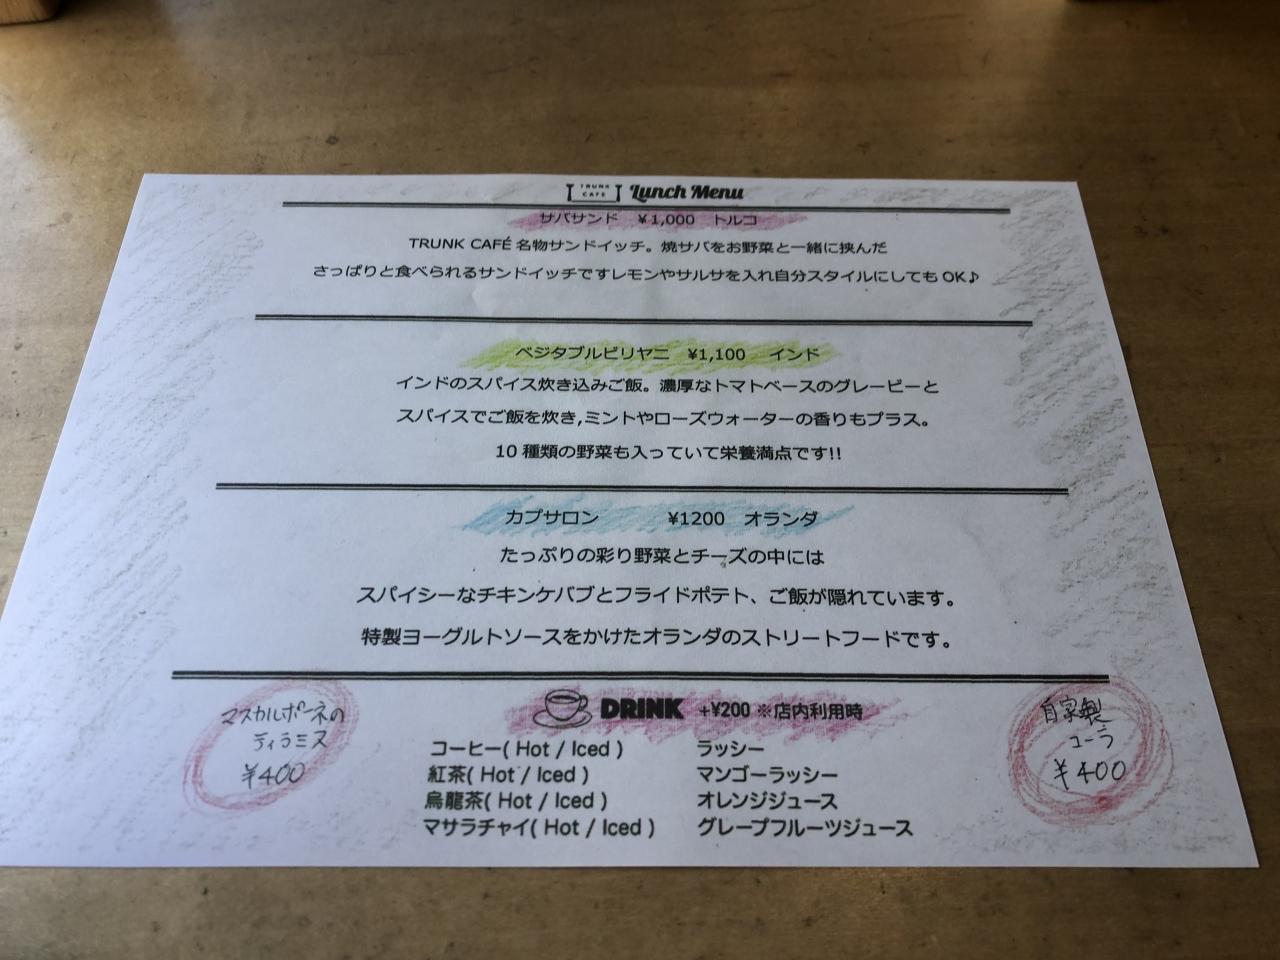 TRUNK CAFE Lunch Menu
サバサンド ¥1,000 トルコ
TRUNK CAFÉ 名物サンドイッチ。焼サバをお野菜と一緒に挟んだ
さっぱりと食べられるサンドイッチですレモンやサルサを入れ自分スタイルにしてもOK♪
ベジタブルビリヤニ ¥1,100 インド
インドのスパイス炊き込みご飯。濃厚なトマトベースのグレービーと
スパイスでご飯を炊き,ミントやローズウォーターの香りもプラス。
10種類の野菜も入っていて栄養満点です!!
カプサロン ¥1200 オランダ
たっぷりの彩り野菜とチーズの中には
スパイシーなチキンケバブとフライドポテト、ご飯が隠れています。
特製ヨーグルトソースをかけたオランダのストリートフードです。
マスカルポーネの
ティラミス
¥400
DRINK +¥200 ※店内利用時
コーヒー( Hot / Iced ) ラッシー
紅茶( Hot / Iced ) マンゴーラッシー
烏龍茶( Hot / Iced ) オレンジジュース
マサラチャイ( Hot / Iced ) グレープフルーツジュース
自家製
コーラ
¥400